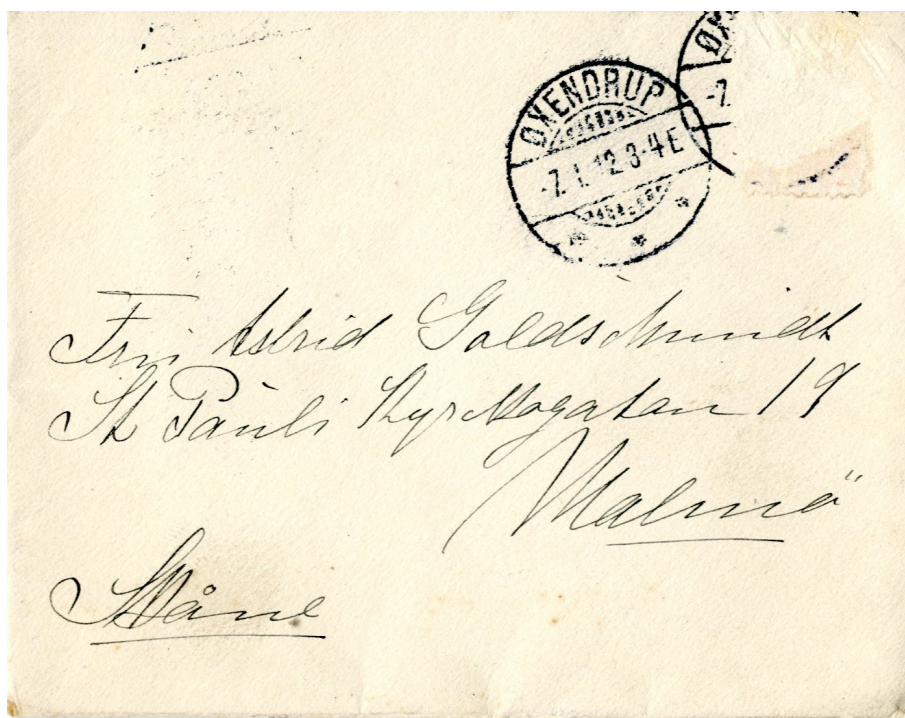 ØX
-7.
ØXENDRUP
-7.1.12.3-4E
Fru Astrid Goldschmidt
St Pauli Kyrkogatan 19
Malmö
Skåne